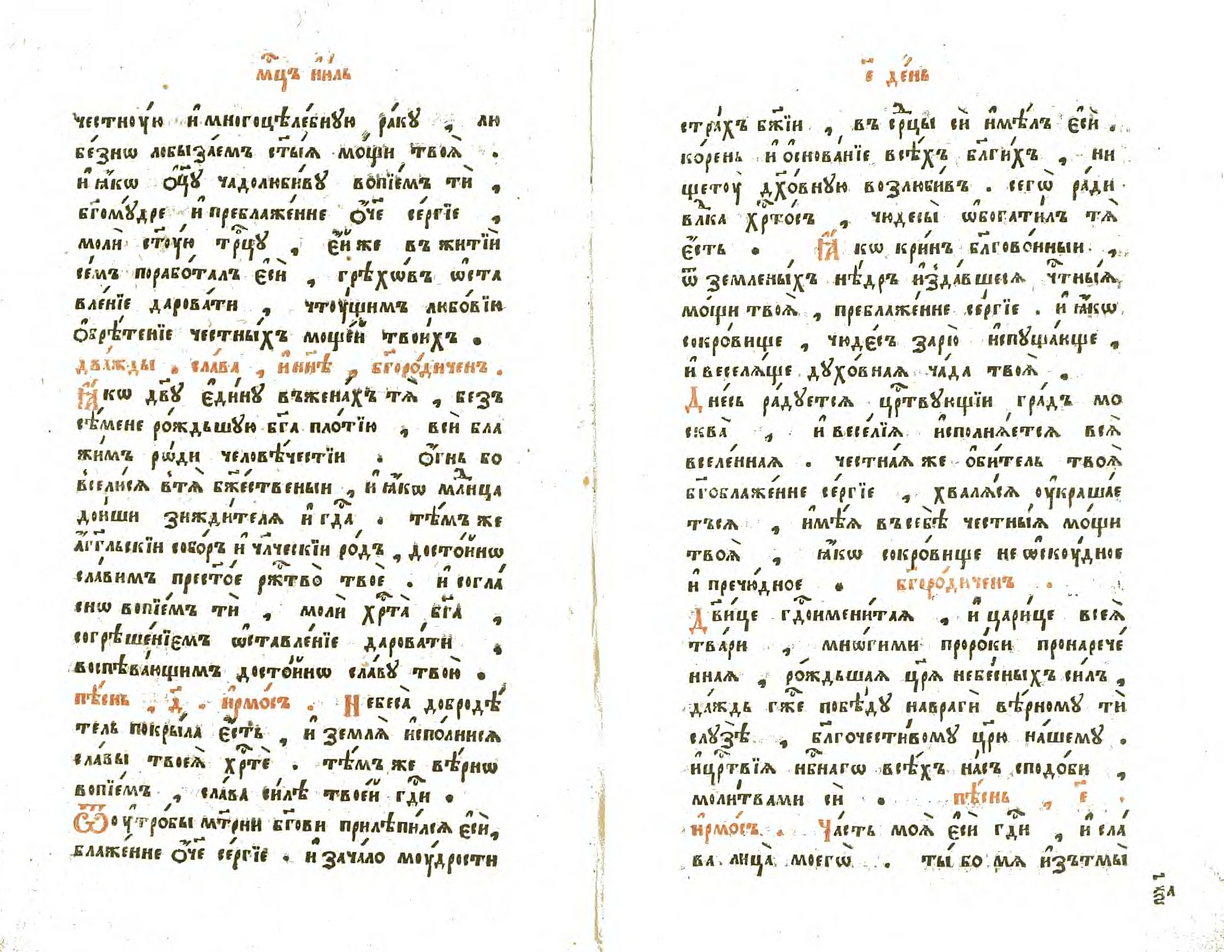 мⷭ҇цъ і҆ю́ль
честноую и҆многоцѣле́бную ра́ку , лю
бе́знѡ лобыза́емъ ст҃ы́ѧ мо́щи твоѧ̀ .
и҆ ꙗ҆́кѡ ѻ҆ц҃у̀ чадолюби́ву вопїе́мъ тѝ ,
бг҃ому́дре и҆ преблаже́нне ѻ҆́ч҃е се́ргїе ,
молѝ ст҃оу́ю трⷪ҇цу , є҆́йже въ житїѝ
се́мъ порабо́талъ є҆сѝ , грѣхѡ́въ ѡ҆ста
вле́нїе дарова́ти , чтоу́щимъ любо́вїю
ѻ҆брѣ́тенїе честны́хъ моще́й твои́хъ .
два́жды . сла́ва , и҆ нн҃ѣ , бг҃оро́диченъ .
Ꙗ҆́кѡ дв҃у є҆ди́ну въжена́хъ тѧ̀ , безъ
сѣ́мене ро́ждьшую бг҃а пло́тїю , всѝ бла
жи́мъ ро́ди человѣ́честїи . ѻ҆́гнь бо
всели́сѧ втѧ̀ бж҃е́ственыи , и҆ ꙗ҆́кѡ млⷣнца
дои́ши зижди́телѧ и҆ гдⷭ҇а . тѣ́мъ же
а҆́гг҃льскїи собо́р и҆ чл҃ческїи ро́дъ , досто́йнѡ
сла́вимъ прест҃о́е ржⷭ҇тво̀ твоѐ . и҆ согла́
снѡ вопїе́мъ тѝ , молѝ хрⷭ҇та̀ бг҃а ,
согрѣше́нїемъ ѡ҆ставле́нїе дарова́ти
воспѣва́ющимъ досто́йнѡ сла́ву твою̀ .
пѣ́снь , д҃ . і҆рмо́съ . Небеса̀ добродѣ́
тель покры́ла є҆́сть , и҆ землѧ̀ и҆спо́лнисѧ
сла́вы твоеѧ̀ хрⷭ҇тѐ . тѣ́мъ же вѣ́рнѡ
вопїе́мъ , сла́ва си́лѣ твое́й гдⷭ҇и .
Ѿ оутро́бы мт҃рни бг҃ови прилѣпи́лсѧ є҆сѝ,
блаже́нне ѻ҆́ч҃е се́ргїе . и҆ зача́ло моу́дрости
е҃ де́нь
стра́хъ бж҃їи , въ срⷣцы сѝ и҆мѣ́лъ є҆сѝ .
ко́рень и҆ ѻ҆снова́нїе всѣ́хъ бл҃ги́хъ , ни
щетоу̀ дх҃о́вную возлюби́въ . сегѡ̀ ра́ди
влⷣка хрⷭ҇то́съ , чюдесы̀ ѡ҆богати́лъ тѧ̀
є҆́сть . Ꙗ҆́кѡ кри́нъ бл҃гово́нныи ,
ѿ земленыхъ нѣ́дръ и҆зда́вшесѧ чⷭ҇тны́ѧ
мо́щи твоѧ̀ , преблаже́нне се́ргїе . и҆ ꙗ҆́кѡ
сокро́вище , чюде́съ зарю̀ и҆спуща́юще ,
и҆ веселѧ́ще духо́внаѧ ча́да твоѧ̀ .
Дне́сь ра́дуетсѧ црⷭ҇твующїи гра́дъ мо
сква̀ , и҆ весе́лїѧ и҆сполнѧ́етсѧ всѧ̀
вселе́ннаѧ . честна́ѧ же ѻ҆би́тель твоѧ̀
бг҃облаже́нне се́ргїе , хвалѧ́сѧ оу҆краша́е
тъсѧ , и҆мѣ́ѧ въсебѣ̀ честны́ѧ мо́щи
твоѧ̀ , ꙗ҆́кѡ сокро́вище не ѡ҆скоу́дное
и҆ пречю́дное . бг҃оро́диченъ .
Дв҃и́це гдⷭ҇оимени́таѧ , и҆ цари́це всеѧ̀
тва́ри , мно́гими проро́ки пронарече́
ннаѧ , ро́ждьшаѧ цр҃ѧ̀ небе́сныхъ си́лъ ,
да́ждь гж҃е побѣ́ду навраги̑ вѣ́рному тѝ
слузѣ̀ , бл҃гочести́вому цр҃ю̀ на́шему .
и҆црⷭ҇твїѧ нбⷭ҇нагѡ всѣ́хъ на́съ сподо́би ,
моли́твами сѝ . пѣ́снь , е҃ .
і҆рмо́съ . Ча́сть моѧ̀ є҆сѝ гдⷭ҇и , и҆ сла́
ва лица̀ моегѡ̀ . ты́ бо мѧ и҆зътмы̀